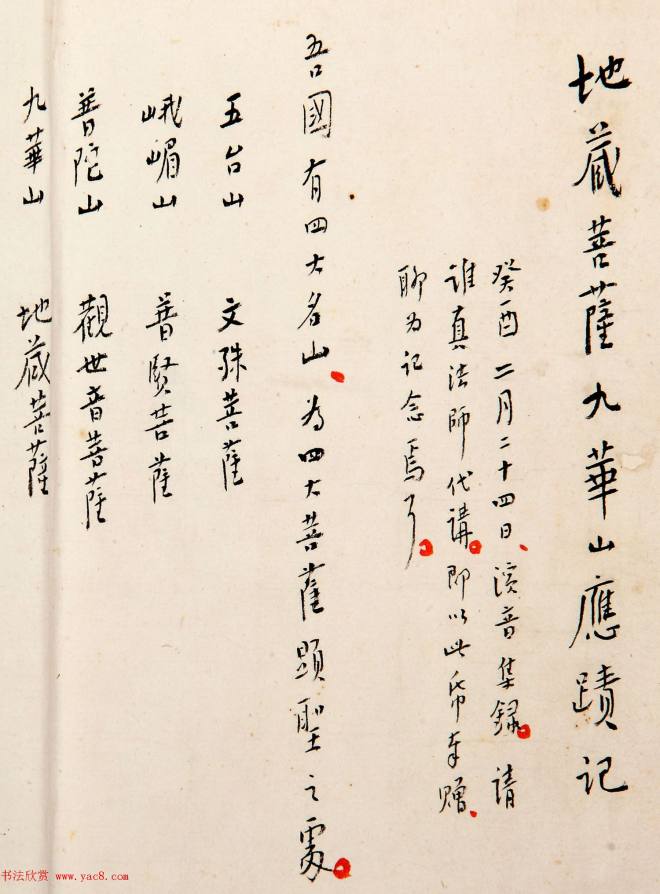 地藏菩薩九華山應蹟記
癸酉二月二十四日、演音集録。請
真法師代講。即以此帋奉贈、
聊为记念焉。
吾國有四大名山、为四大菩薩顯聖之處。
五台山 文殊菩薩
峨嵋山 普賢菩薩
普陀山 觀世音菩薩
九華山 地藏菩薩
书法欣赏 www.yac8.com